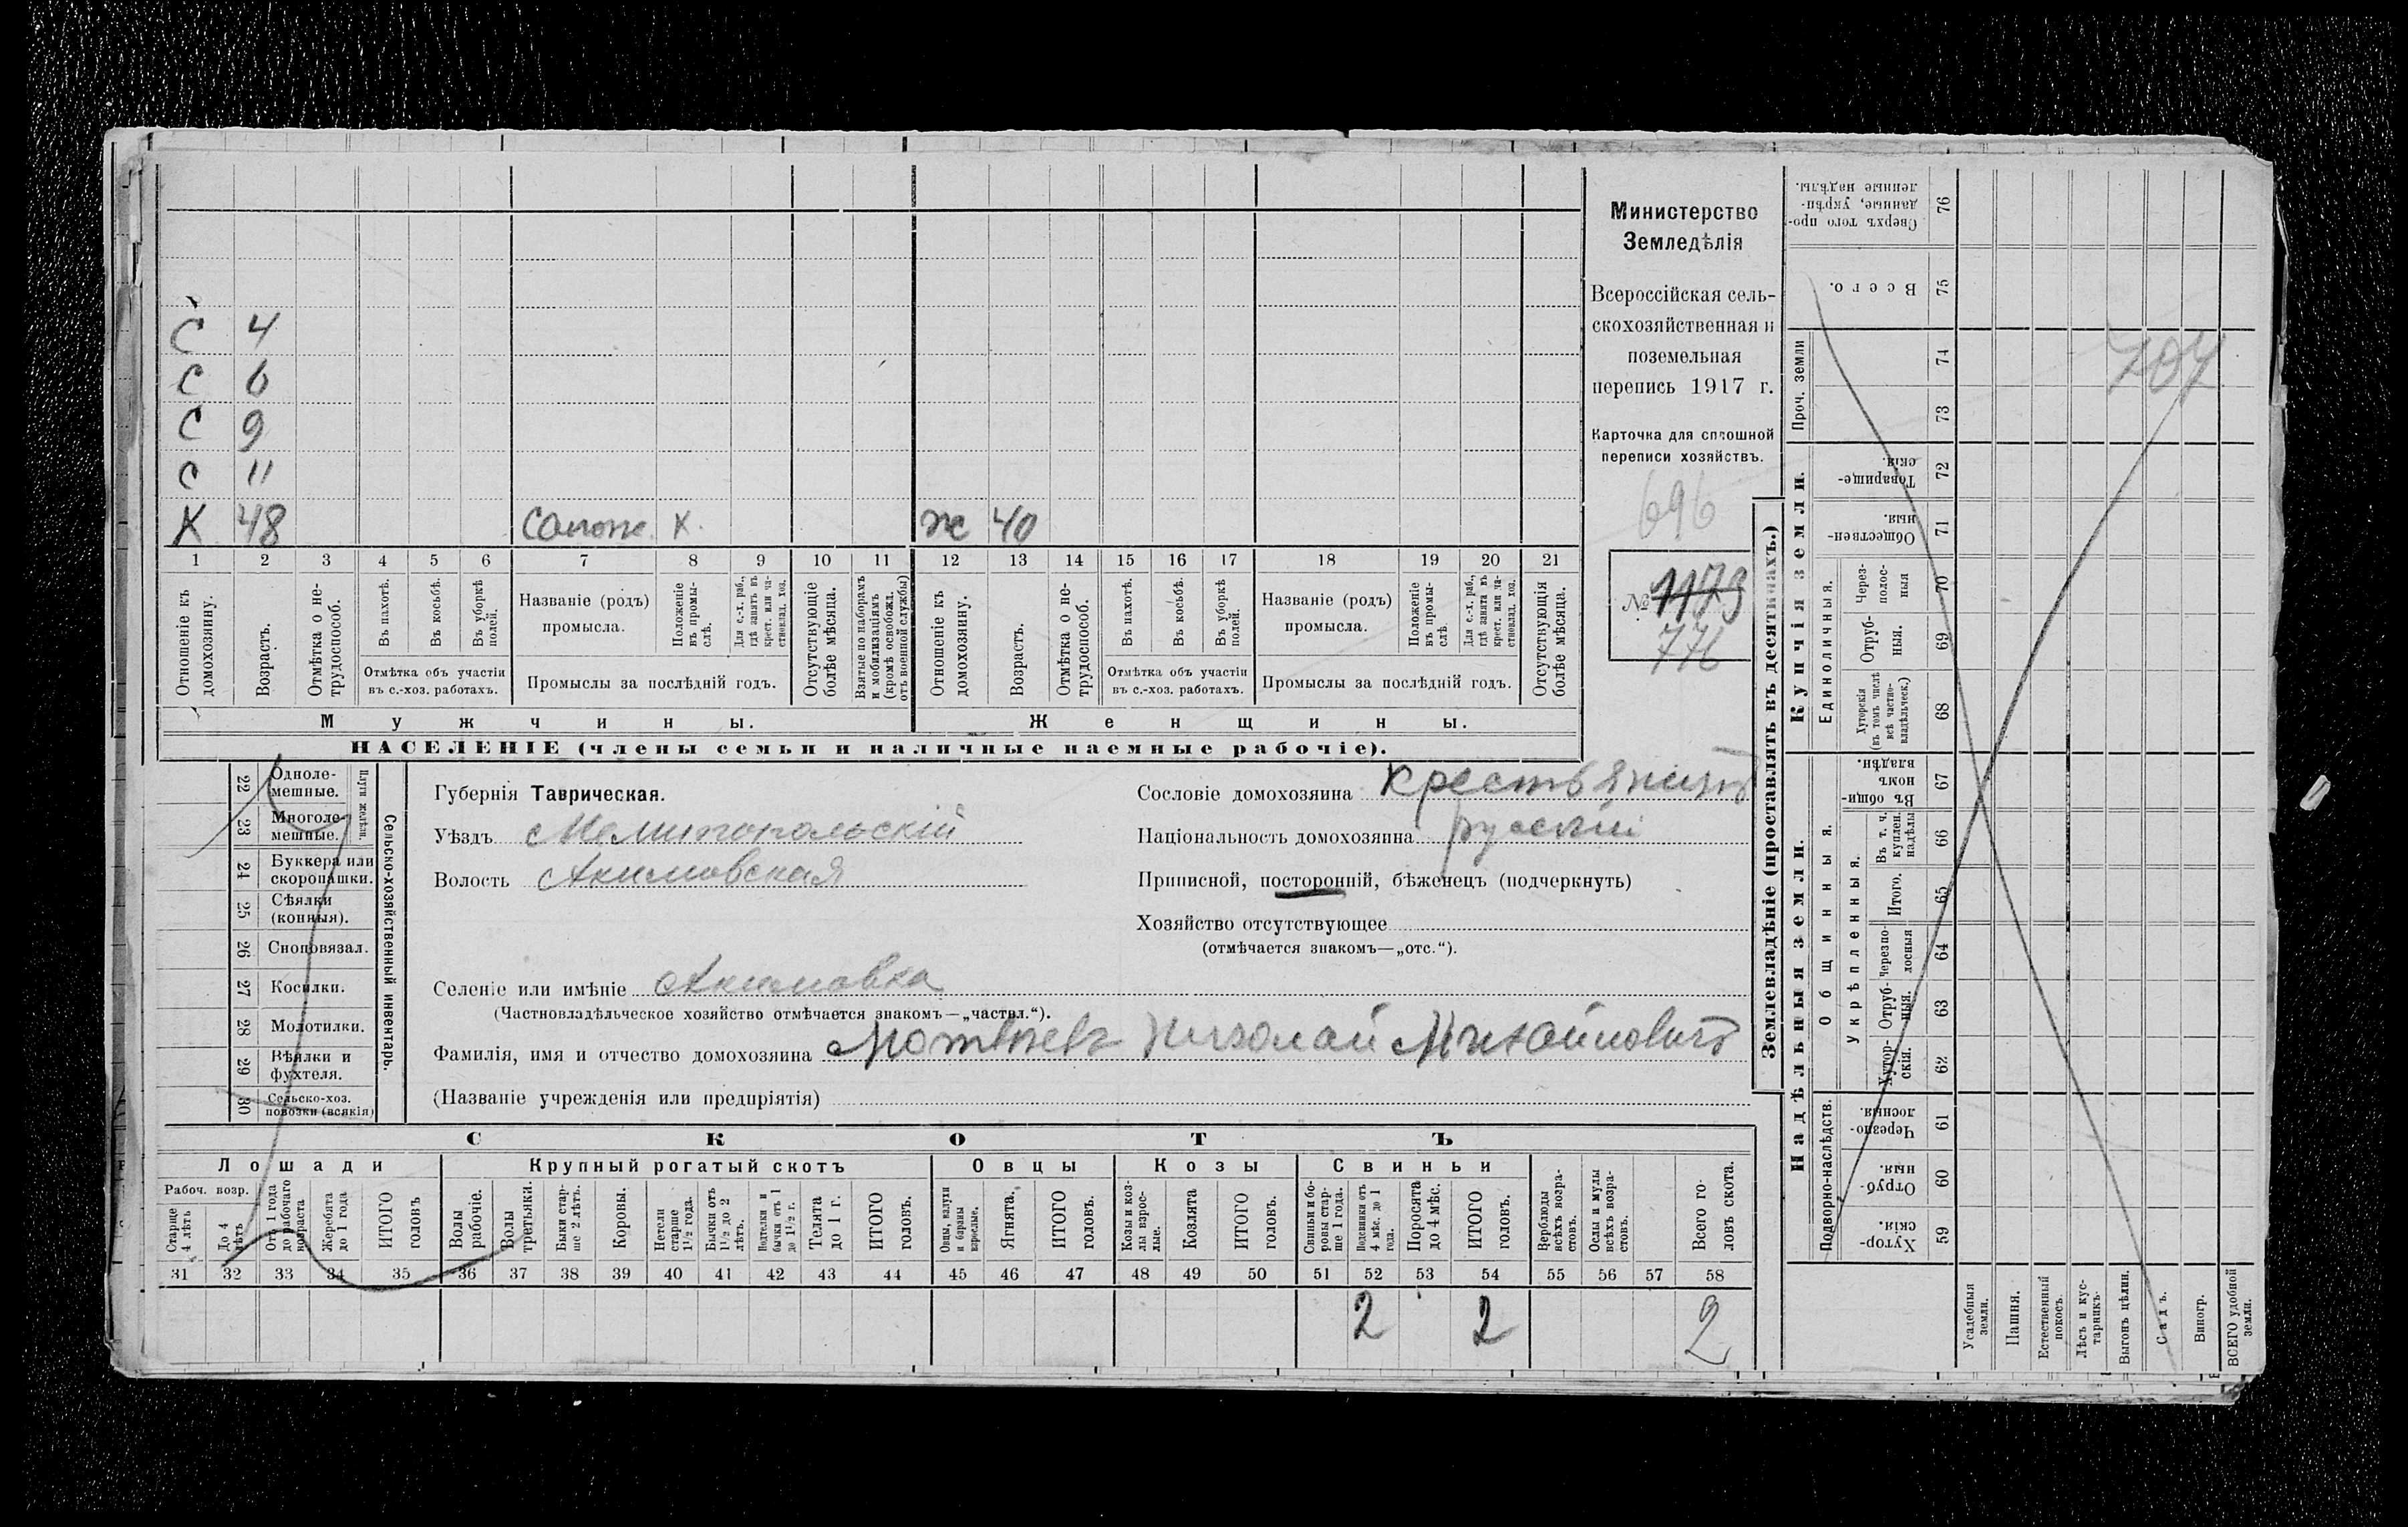 С 4
С 6
С 9
С 11
Х 48 сапож. Х. ж 40
1 2 3 4 5 6 7 8 9 10 11 12 13 14 15 16 17 18 19 20 21
Отношеніе къ домохозяину.
Возрастъ.
Отмѣтка о не-трудоспособ.
Въ пахотѣ.
Въ косьбѣ.
Въ уборкѣ полей.
Отмѣтка объ участіи
въ с.-хоз. работахъ.
Названіе (родъ)
промысла.
Положеніе въ промы-слѣ.
Для с.-х. раб., гдѣ занятъ въ крест. или ча-стновлад. хоз.
Промыслы за послѣдній годъ.
Отсутствующіе болѣе мѣсяца.
Взятые по наборамъ и мобилизаціямъ (кромѣ освобожд. отъ военной службы)
Отношеніе къ домохозяину.
Возрастъ.
Отмѣтка о не-трудоспособ.
Въ пахотѣ.
Въ косьбѣ.
Въ уборкѣ полей.
Отмѣтка объ участіи
въ с.-хоз. работахъ.
Названіе (родъ)
промысла.
Положеніе въ промы-слѣ.
Для с.-х. раб., гдѣ занята въ крест. или ча-стновлад. хоз.
Промыслы за послѣдній годъ.
Отсутствующія болѣе мѣсяца.
Мужчины. Женщины.
НАСЕЛЕНІЕ (члены семьи и наличные наемные рабочіе).
Министерство
Земледѣлія
Всероссійская сель-
скохозяйственная и
поземельная
перепись 1917 г.
Карточка для сплошной
переписи хозяйствъ.
696
№ 1173
776
22 Одноле-мешные.
23 Многоле-мешные.
Плуги желѣзн.
24 Буккера или скоропашки.
25 Сѣялки (конныя).
26 Сноповязал.
27 Косилки.
28 Молотилки.
29 Вѣялки и фухтеля.
30 Сельско-хоз. повозки (всякія)
Сельско-хозяйственный инвентарь.
Губернія Таврическая.
Уѣздъ Мелитопольскій
Волость Акимовская
Сословіе домохозяина крестьянинъ
Національность домохозяина русскій
Приписной, посторонній, бѣженецъ (подчеркнуть)
Хозяйство отсутствующее
(отмѣчается знакомъ—„отс.“).
Селеніе или имѣніе Акимовка
(Частновладѣльческое хозяйство отмѣчается знакомъ—„частвл.“).
Фамилія, имя и отчество домохозяина Матвѣевъ Николай Михайловичъ
(Названіе учрежденія или предпріятія)
СКОТЪ
Лошади Крупный рогатый скотъ Овцы Козы Свиньи
Рабоч. возр.
Старше 4 лѣтъ
До 4 лѣтъ
Отъ 1 года до рабочаго возраста
Жеребята до 1 года
ИТОГО головъ
Волы рабочіе.
Волы третьяки.
Быки стар-ше 2 лѣтъ.
Коровы.
Нетели старше 1½ года.
Бычки отъ 1½ до 2 лѣтъ.
Водтелки и бычки отъ 1 до 1½ г.
Телята до 1 г.
ИТОГО головъ.
Овцы, валухи и бараны взрослые.
Ягнята.
ИТОГО головъ.
Козы и коз-лы взрос-лые.
Козлята
ИТОГО головъ.
Свиньи и бо-ровы стар-ше 1 года.
Подсвинки отъ 4 мѣс. до 1 года.
Поросята до 4 мѣс.
ИТОГО головъ.
Верблюды всѣхъ возра-стовъ.
Ослы и мулы всѣхъ возра-стовъ.
Всего го-ловъ скота.
31 32 33 34 35 36 37 38 39 40 41 42 43 44 45 46 47 48 49 50 51 52 53 54 55 56 57 58
2 2 2
Землевладѣніе (проставлять въ десятинахъ.)
Купчія земли.
Надѣльныя земли.
Сверхъ того про-данные, укрѣп-ленные надѣлы. 76
Всего. 75
Проч. земли
74
73
Товарище-скія. 72
Обществен-ныя. 71
Единоличныя.
Через-полос-ныя 70
Отруб-ныя. 69
Хуторскія (въ томъ числѣ всѣ частно-владѣльческ.) 68
Въ общи-номъ владѣн. 67
Общинныя.
Укрѣпленныя.
Въ т. ч. куплен. надѣлы 66
Итого. 65
Черезпо-лосныя 64
Отруб-ныя. 63
Хутор-скія. 62
Подворно-наслѣдств.
Черезпо-лосныя. 61
Отруб-ныя. 60
Хутор-скія. 59
Усадебныя земли.
Пашня.
Естественный покосъ.
Лѣсъ и кус-тарникъ.
Выгонъ цѣлин.
Садъ.
Виногр.
ВСЕГО удобной земли.
707